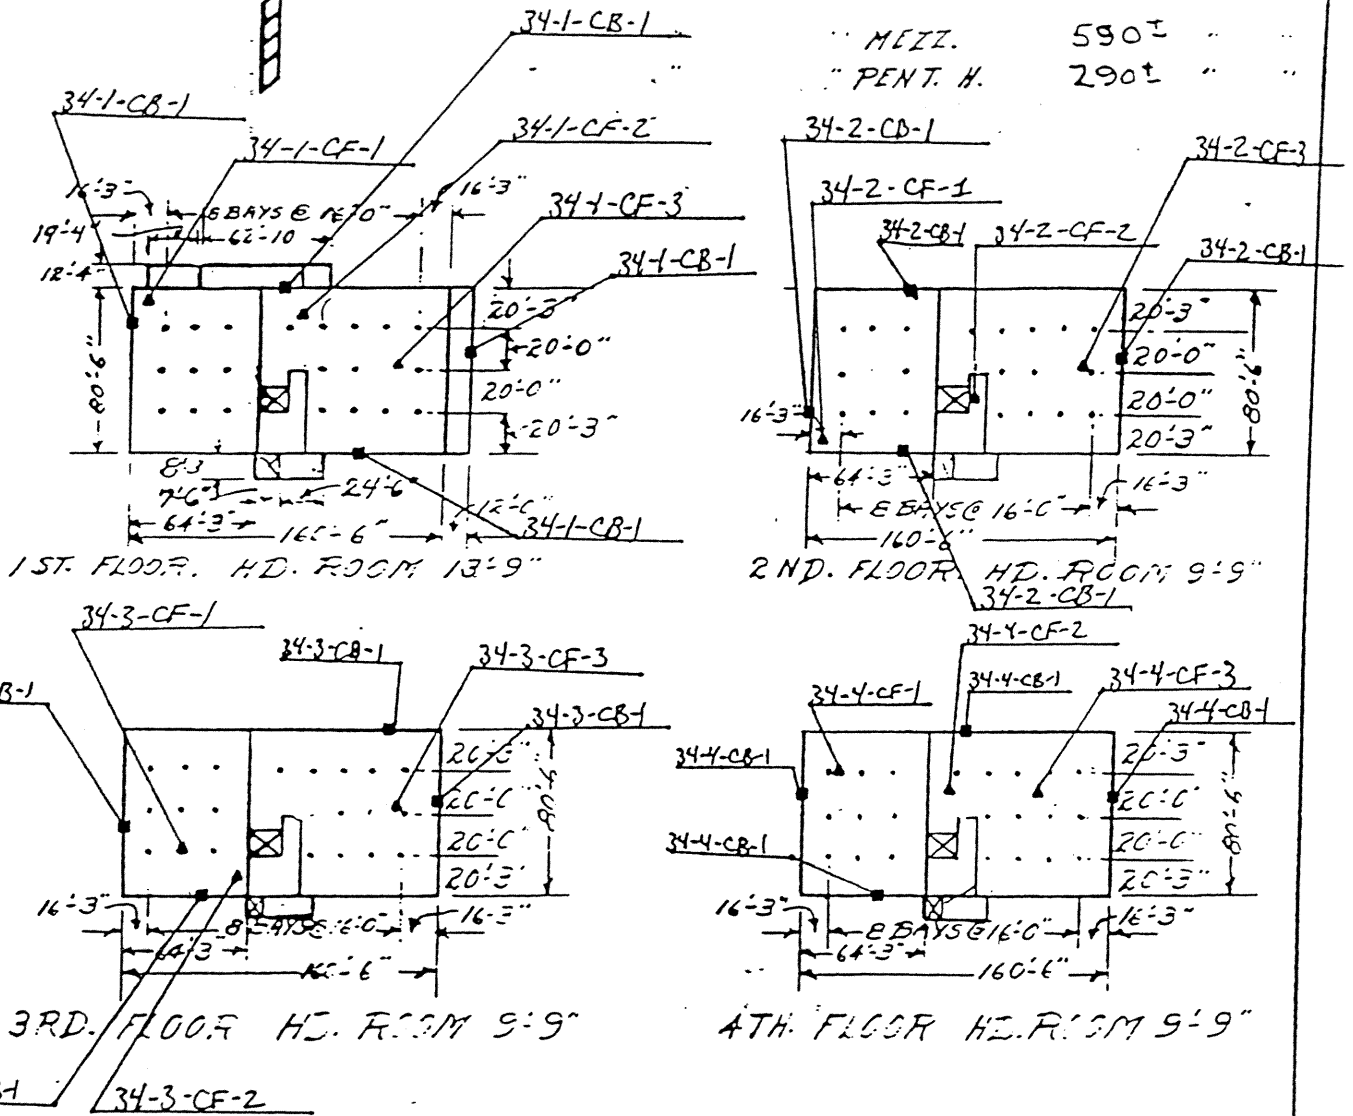 34-1-CB-1
" MEZZ. 590± " "
" PENT. H. 290± " "
34-1-CB-1
34-1-CF-2
34-1-CF-1
16'-3"
16'-3"
8 BAYS @
19'-4"
62'-10
34-1-CF-3
12'-4"
34-1-CB-1
20'-3"
20'-0"
20'-0"
20'-3"
80'-6"
8'-3
7'-6"
24'-6
64'-3"
12'-0"
34-1-CB-1
1ST. FLOOR. HD. ROOM 13'-9"
34-2-CB-1
34-2-CF-3
34-2-CF-1
34-2-CB-1
34-2-CF-2
34-2-CB-1
20'-3"
20'-0"
20'-0"
20'-3"
80'-6"
16'-3"
64'-3"
16'-3"
8 BAYS @ 16'-0"
160'-6"
2ND. FLOOR. HD. ROOM 9'-9"
34-2-CB-1
34-3-CF-1
34-3-CB-1
34-3-CF-3
B-1
34-3-CB-1
20'-3"
20'-0"
20'-0"
20'-3"
80'-6"
16'-3"
16'-3"
8 BAYS @ 16'-0"
64'-3
160'-6"
3RD. FLOOR HD. ROOM 9'-9"
-1
34-3-CF-2
34-4-CF-2
34-4-CF-1
34-4-CB-1
34-4-CF-3
34-4-CB-1
34-4-CB-1
34-4-CB-1
20'-3"
20'-0"
20'-0"
20'-3"
80'-6"
16'-3"
16'-3"
8 BAYS @ 16'-0"
64'-3"
160'-6"
4TH. FLOOR HD. ROOM 9'-9"